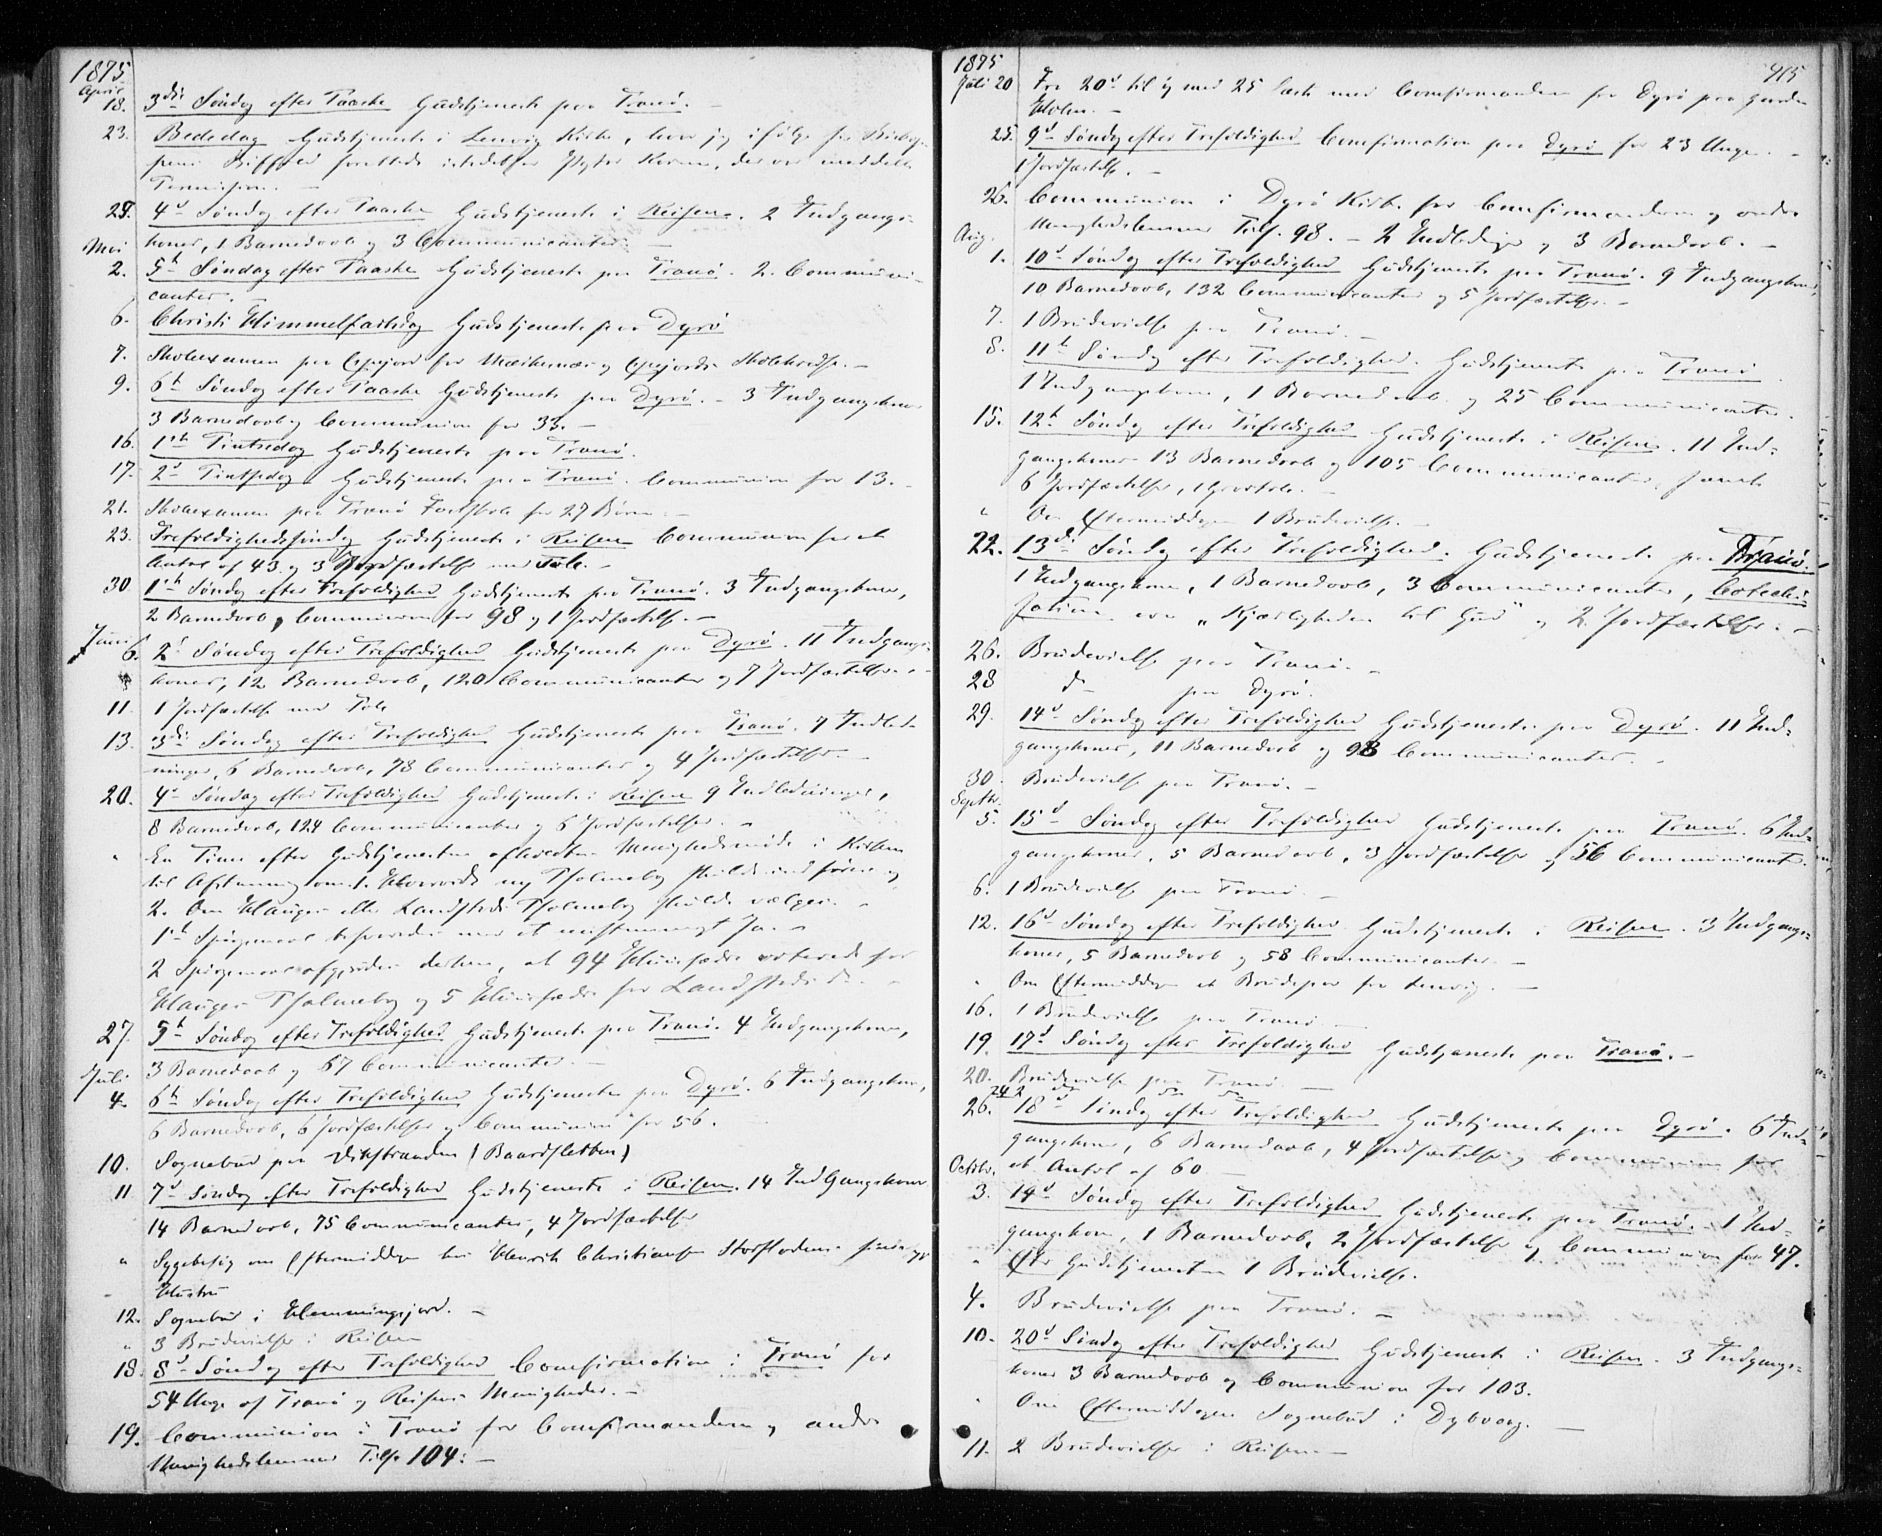 1875
April
18. 3die Søndag efter Paaske Gudstjeneste paa Tranø. –
23. Bededag Gudstjeneste i Lenvig Kirke, hvor jeg ifølge
Permission. –
25. 4d Søndag efter Paaske Gudstjeneste i Reisen. 2 Indgangs-
koner, 1 Barnedaab og 3 Communicanter. –
Mai
2. 5te Søndag efter Paaske Gudstjeneste paa Tranø. 2 Communi-
canter. –
6. Christi Himmelfartsdag Gudstjeneste paa Dyrø
7. Skoleexamen paa Gisfjord for
9. 6te Søndag efter Paaske Gudstjeneste paa Dyrø. – 3 Indgangskoner
3 Barnedaab og Communion for 33. –
16. 1ste Pintsedag Gudstjeneste paa Tranø.
17. 2d Pintsedag Gudstjeneste paa Tranø. Communion for 13. –
21. Skoleexamen paa Tranø Fastskole for 27 Børn. –
23. Trefoldighedssøndag Gudstjeneste i Reisen Communion for et
Antal af 43 og 3 Jordfæstelser med Tale. –
30 1ste Søndag efter Trefoldighed Gudstjeneste paa Tranø. 3 Indgangskoner,
2 Barnedaab, Communion for 98 og 1 Jordfæstelse. –
Juni
6. 2d Søndag efter Trefoldighed Gudstjeneste paa Dyrø. 11 Indgangs-
koner, 12 Barnedaab, 120 Communicanter og 7 Jordfæstelser. –
11. 1 Jordfæstelse med Tale
13. 3die Søndag efter Trefoldighed Gudstjeneste paa Tranø. 7 Indled-
ninger, 6 Barnedaab, 78 Communicanter og 4 Jordfæstelser. –
20. 4d Søndag efter Trefoldighed Gudstjeneste i Reisen 9 Indledninger,
8 Barnedaab, 124 Communicanter og 6 Jordfæstelser. –
" En Time efter Gudstjenesten afholdtes Menighedsmøde i Kirken
til Afstemning om 1. Hvorvidt ny Psalmebog skulde indføres og
2. Om Hauges eller Landstads Psalmebog skulde vælges. –
1ste Spørgsmaal besvaredes med et eenstemmigt Ja. –
2 Spørgsmaal afgjordes derhen, at 94 Huusfædre voterede for
Hauges Psalmebog og 5 Huusfædre for Landstads
27. 5te Søndag efter Trefoldighed Gudstjeneste paa Tranø. 4 Indgangskoner,
3 Barnedaab og 57 Communicanter. –
Juli
4. 6te Søndag efter Trefoldighed Gudstjeneste paa Dyrø. 6 Indgangskoner,
6 Barnedaab, 6 Jordfæstelser og Communion for 56.
10. Sognebud paa Vikstranden (Baardsletten)
11 7d Søndag efter Trefoldighed Gudstjeneste i Reisen. 14 IndGangskoner
14 Barnedaab, 75 Communicanter, 4 Jordfæstelser
" Sygebesøg om Eftermiddagen hos Henrik Christiansen Storflodens
Hustru
12. Sognebud i Hemmingsjord. –
" 3 Brudevielser i Reisen
18. 8d Søndag efter Trefoldighed Confirmation i Tranø for
54 Unge af Tranø og Reisens Menigheder. –
19. Communion i Tranø for Confirmanderne og andre
Menighedslemmer Tils. 104. –
1875
415
Juli 20 Fra 20d til og med 25 Læste med Confirmanderne for Dyrø paa
Holm. –
25. 9d Søndag efter Trefoldighed Confirmation paa Dyrø for 23 Unge. –
1 Jordfæstelse. –
26. Communion i Dyrø Kirke for Confirmanderne og andre
Menighedslemmer Tils. 98. – 2 Indledninger og 3 Barnedaab. –
Aug.
1. 10d Søndag efter Trefoldighed Gudstjeneste paa Tranø. 9 Indgangskoner,
10 Barnedaab, 132 Communicanter og 5 Jordfæstelser. –
7. 1 Brudevielse paa Tranø. –
8. 11te Søndag efter Trefoldighed. Gudstjeneste paa Tranø.
1 Indgangskone, 1 Barnedaab og 25 Communicanter.
15. 12te Søndag efter Trefoldighed Gudstjeneste i Reisen. 11 Ind-
gangskoner 13 Barnedaab og 105 Communicanter, samt
6 Jordfæstelser, 1 Gravtale. –
" Om Eftermiddagen 1 Brudevielse. –
22. 13de Søndag efter Trefoldighed. Gudstjeneste paa Tranø.
1 Indgangskone, 1 Barnedaab, 3 Communicanter, Catechi-
sation over „Kjærligheden til Gud" og 2 Jordfæstelser. –
26. Brudevielse paa Tranø. –
28 d– paa Dyrø.
29. 14d Søndag efter Trefoldighed Gudstjeneste paa Dyrø. 11 Ind-
gangskoner, 11 Barnedaab og 98 Communicanter. –
30. Brudevielse paa Tranø. –
Septbr.
5. 15d Søndag efter Trefoldighed Gudstjeneste paa Tranø. 6 Ind-
gangskoner, 5 Barnedaab, 3 Jordfæstelser og 56 Communicanter.
6. 1 Brudevielse paa Tranø. –
12. 16d Søndag efter Trefoldighed Gudstjeneste i Reisen. 3 Indgangs-
koner, 5 Barnedaab og 58 Communicanter. –
" Om Eftermiddagen et Brudepar fra Lenvig. –
16. 1 Brudevielse paa Tranø –
19. 17d Søndag efter Trefoldighed Gudstjeneste paa Tranø. –
20. Brudevielse paa Tranø. –
24 2 do do do
26. 18d Søndag efter Trefoldighed Gudstjeneste paa Dyrø. 6 Ind-
gangskoner, 6 Barnedaab, 4 Jordfæstelser og Communion for
et Antal af 60 –
Octbr.
3. 19d Søndag efter Trefoldighed Gudstjeneste paa Tranø. 1 Ind-
gangskone, 1 Barnedaab, 2 Jordfæstelser og Communion for 47.
" Efter Gudstjenesten 1 Brudevielse.
4. Brudevielse paa Tranø. –
10. 20d Søndag efter Trefoldighed Gudstjeneste i Reisen. 3 Indgangs-
koner 3 Barnedaab og Communion for 103.
" Om Eftermiddagen Sognebud i Dybvaag. –
11. 2 Brudevielser i Reisen –